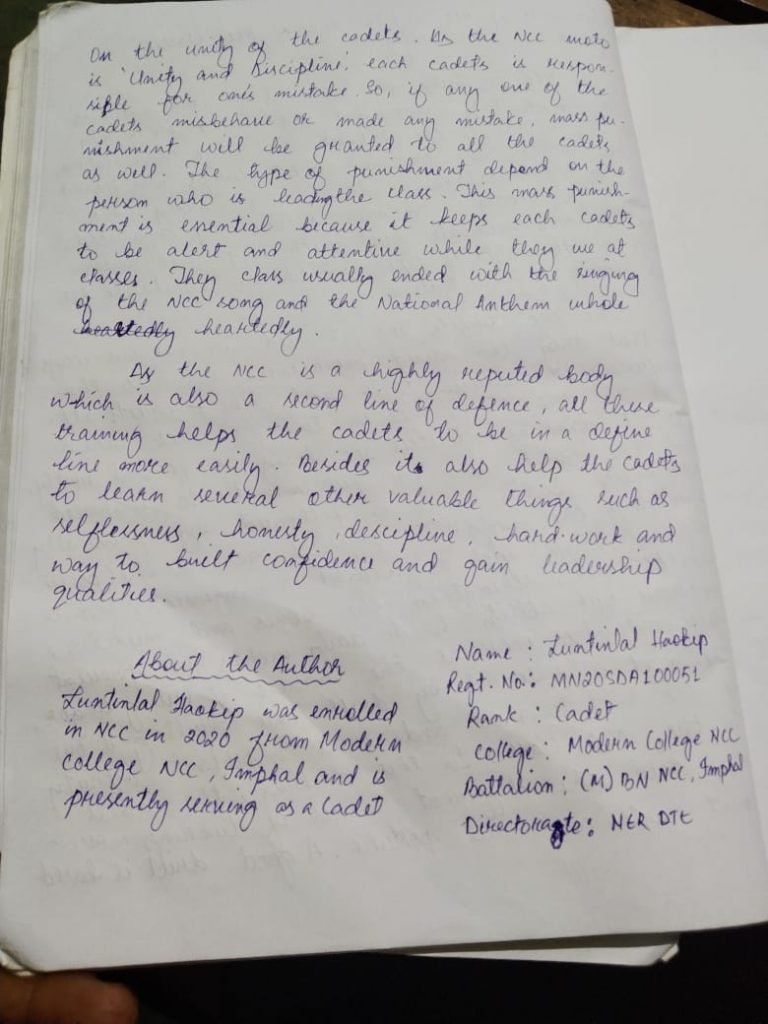 On the unity of the cadets. As the NCC moto
is 'Unity and Discipline'. each cadets is respon-
sible for one's mistake. So, if any one of the
cadets misbehave or made any mistake, mass pu-
nishment will be granted to all the cadets
as well. The type of punishment depend on the
person who is leading the class. This mass punish-
ment is essential because it keeps each cadets
to be alert and attentive while they we at
classes. They class usually ended with the singing
of the NCC song and the National Anthem whole
heartedly heartedly.
As the NCC is a highly reputed body
which is also a second line of defence, all these
training helps the cadets to be in a define
line more easily. Besides it also help the cadets
to learn several other valuable things such as
selflessness, honesty, descipline, hard-work and
way to built confidence and gain leadership
qualities.
About the Author
Luntinlal Haokip was enrolled
in NCC in 2020 from Modern
college NCC, Imphal and is
presently serving as a Cadet
Name : Luntinlal Haokip
Regt. No.: MN20SDA100051
Rank : Cadet
College : Modern College NCC
Battalion : (M) BN NCC, Imphal
Directorate: NER DTE